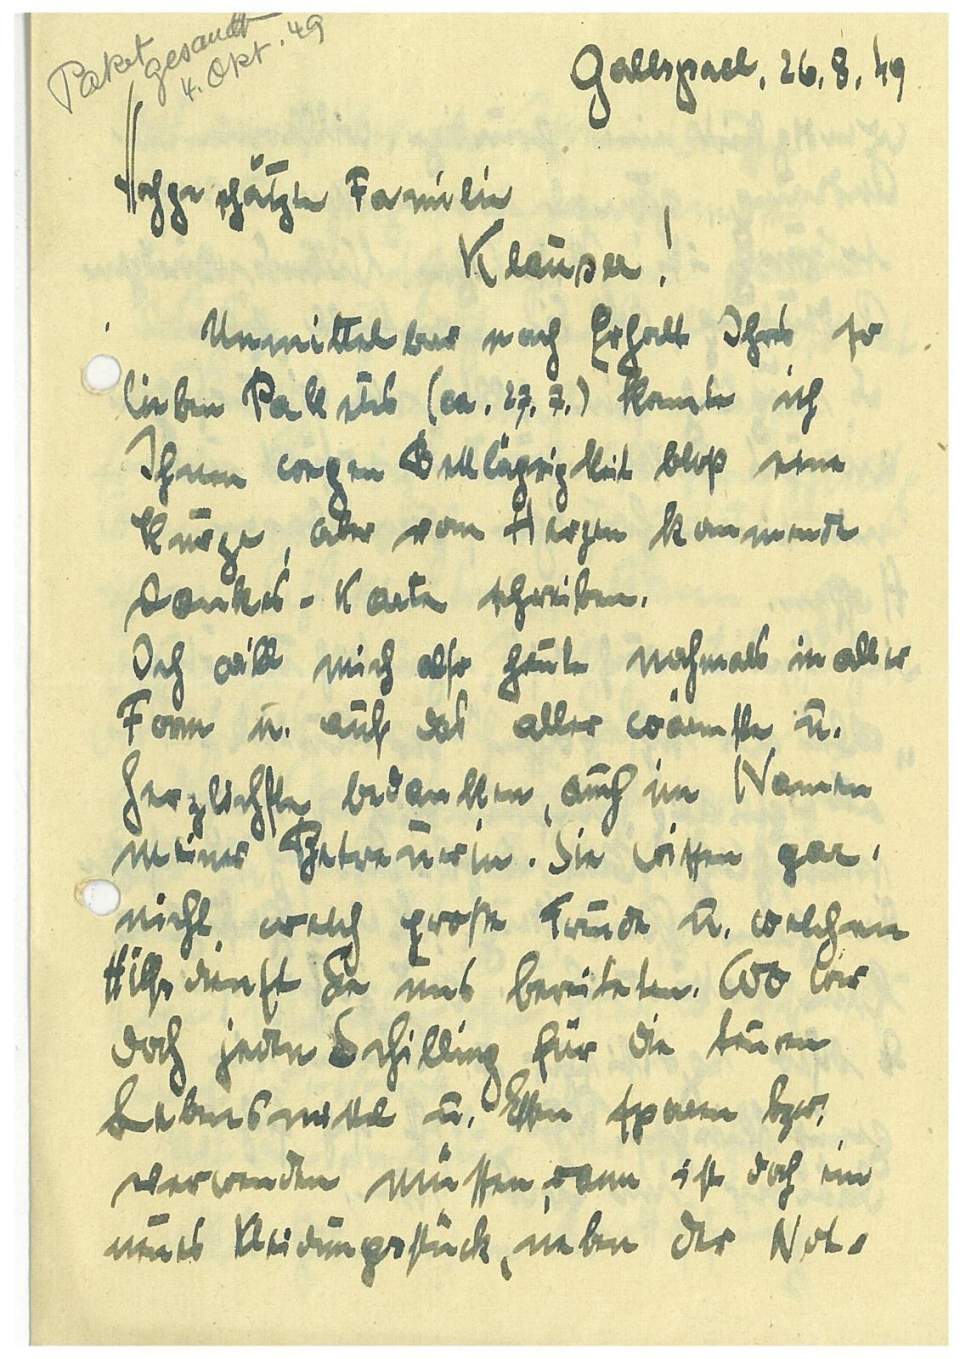 Paket
gesandt
4. Okt. 49
Gallspach, 26.8.49
Hochgeschätzte Familie
Klauser!
Unmittelbar nach Erhalt Ihres so
lieben Paketes (ca. 27.7.) konnte ich
Ihnen wegen Bettlägrigkeit bloß eine
kurze, aber vom Herzen kommende
Dankes-Karte schreiben.
Ich will mich also heute nochmals in aller
Form u. auf das aller wärmste u.
herzlichste bedanken, auch im Namen
meiner Betreuerin. Sie wissen gar
nicht, welch große Freude u. welchen
Hilfsdienst Sie uns bereiteten. Wo wir
doch jeden Schilling für die teuren
Lebensmittel u. Essen sparen bzw.
verwenden müssen, dann ist doch ein
neues Kleidungsstück, neben der Not-